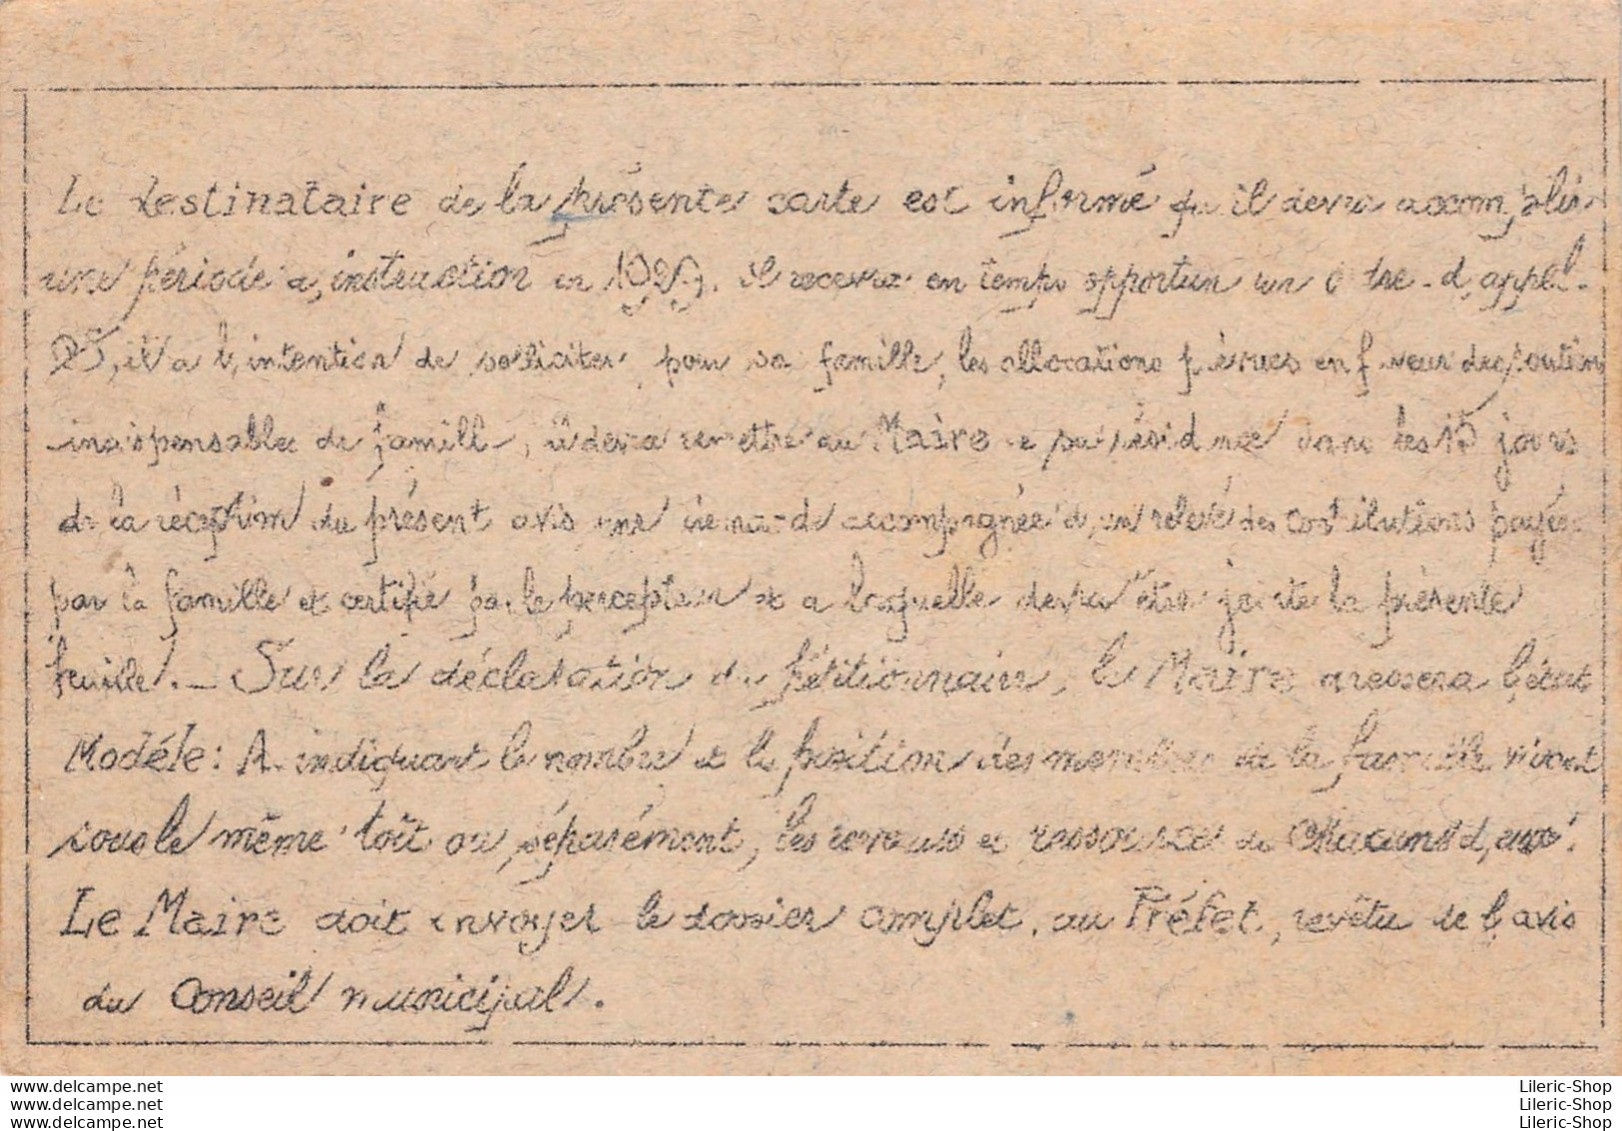 Le destinataire de la présente carte est informé qu'il devra accomplir
une période d,instruction en 192 . il recevra en temps opportun un o dre - d,appel.
S, il a l,intention de solliciter pour sa famille, les allocations prévues en faveur des soutiens
indispensables de famille, il devra remettre au Maire de sa résidence dans les 15 jours
de la réception du présent avis une demande accompagnée d,un relevé des contributions payées
par la famille et certifié par le percepteur et a laquelle devra être jointe la présente
feuille. — Sur la déclaration du pétitionnaire, le Maire dressera l,état
Modèle: A. indiquant le nombre et la position des membres de la famille vivant
sous le même toit ou séparément, les revenus et ressources de chacuns d,eux.
Le Maire doit envoyer le dossier complet, au Préfet, revêtu de l,avis
du Conseil municipal.
www.delcampe.net
www.delcampe.net
www.delcampe.net
Lileric-Shop
Lileric-Shop
Lileric-Shop